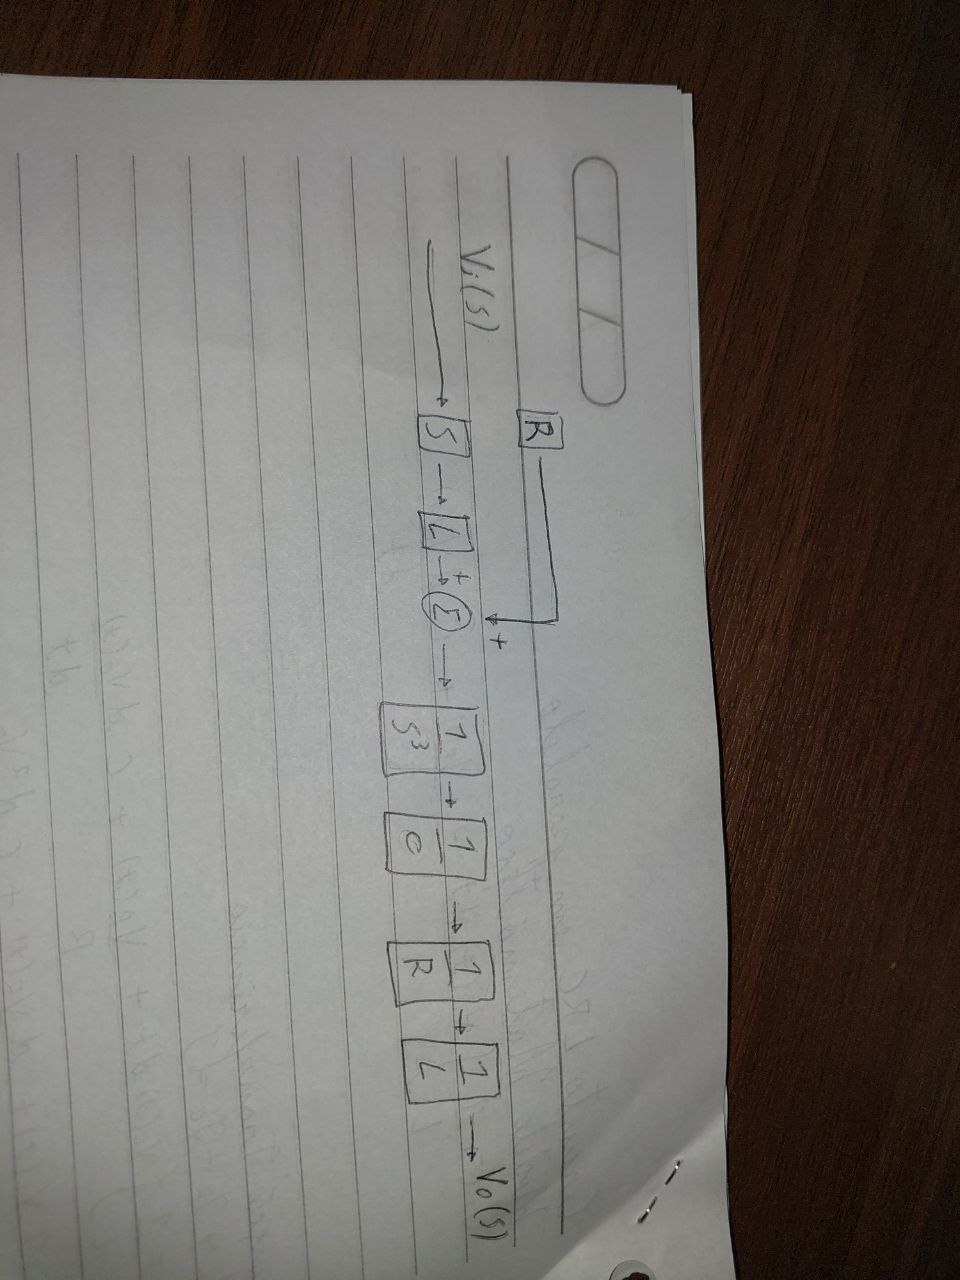 R
+
Vi(s)
S L + Σ 1/S³ 1/C 1/R 1/L Vo(s)